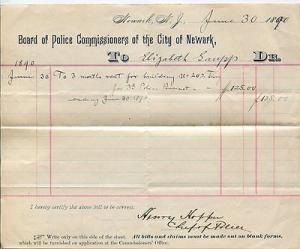 Newark, N. J. June 30 1890
Board of Police Commissioners of the City of Newark,
To Elizabeth Dr.
1890
June 30 To 3 months rent for building No
for 3d Police Precinct $125.00
ending June 30 1890 $125.00
I hereby certify the above bill to be correct.
Henry Hopper
Chief of Police
Write only on this side of the sheet. All bills and claims must be made out on blank forms,
which will be furnished on application at the Commissioners' Office.